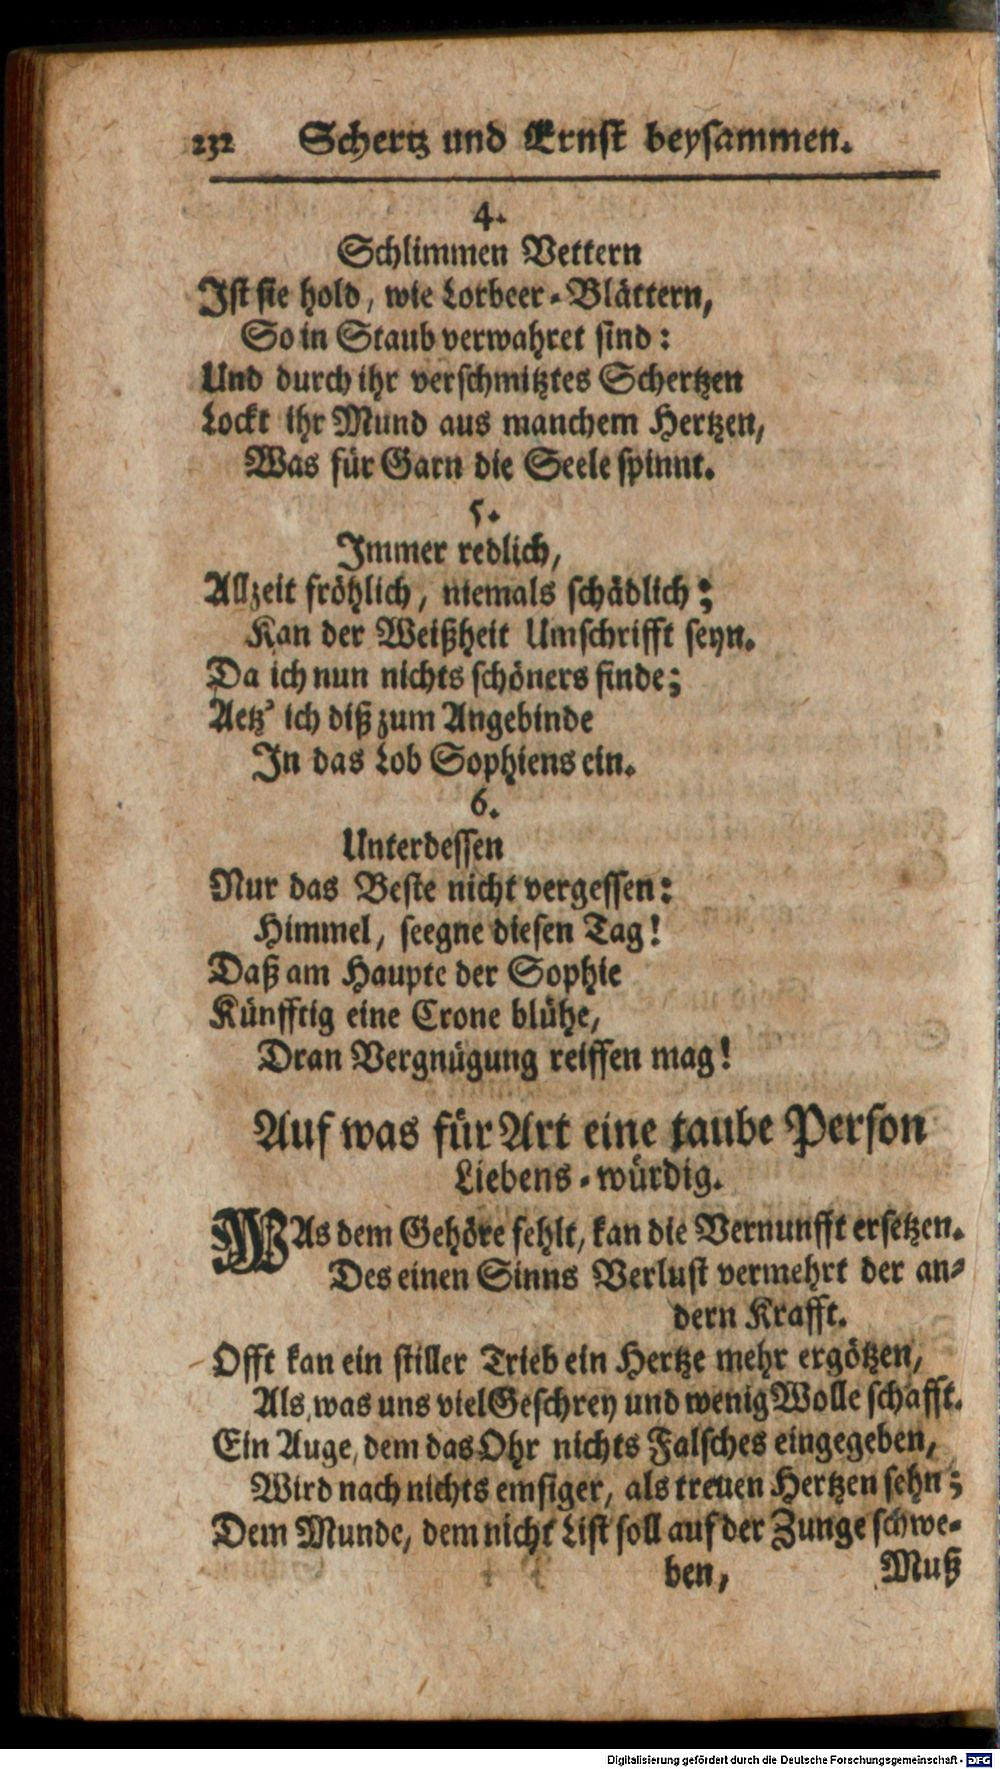 232 Schertz und Ernst beysammen.
4.
Schlimmen Vettern
Ist sie hold, wie Lorbeer-Blättern,
So in Staub verwahret sind:
Und durch ihr verschmitztes Schertzen
Lockt ihr Mund aus manchem Hertzen,
Was für Garn die Seele spinnt.
5.
Immer redlich,
Allzeit fröhlich, niemals schädlich;
Kan der Weißheit Umschrifft seyn.
Da ich nun nichts schöners finde;
Aetz' ich diß zum Angebinde
In das Lob Sophiens ein.
6.
Unterdessen
Nur das Beste nicht vergessen:
Himmel, seegne diesen Tag!
Daß am Haupte der Sophie
Künfftig eine Crone blühe,
Dran Vergnügung reissen mag!
Auf was für Art eine taube Person
Liebens-würdig.
WAs dem Gehöre fehlt, kan die Vernunfft ersetzen.
Des einen Sinns Verlust vermehrt der an-
dern Krafft.
Offt kan ein stiller Trieb ein Hertze mehr ergötzen,
Als, was uns viel Geschrey und wenig Wolle schafft.
Ein Auge, dem das Ohr nichts Falsches eingegeben,
Wird nach nichts emsiger, als treuen Hertzen sehn;
Dem Munde, dem nicht List soll auf der Zunge schwe-
ben, Muß
Digitalisierung gefördert durch die Deutsche Forschungsgemeinschaft - DFG